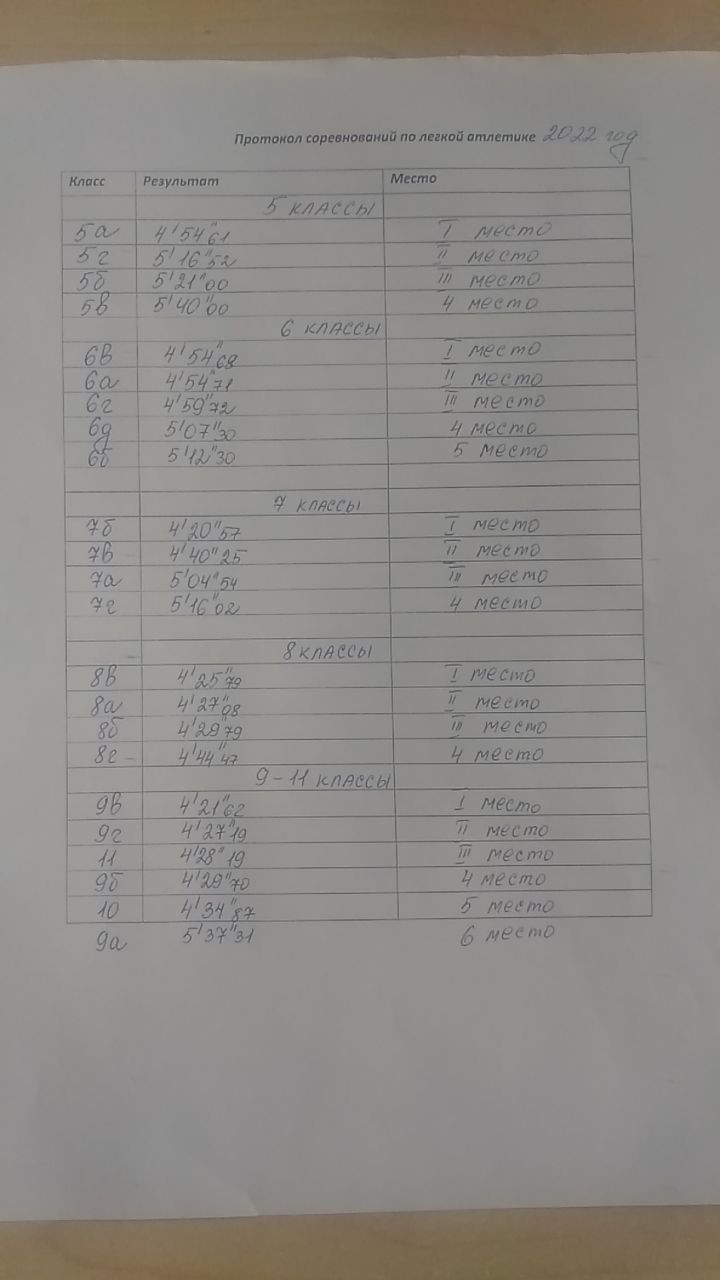 Протокол соревнований по легкой атлетике 2022 год
Класс Результат Место
5 КЛАССЫ
5а 4'54"61 I место
5г 5'16"52 II место
5б 5'21"00 III место
5в 5'40"00 4 место
6 КЛАССЫ
6в 4'54"68 I место
6а 4'54"71 II место
6г 4'59"72 III место
6д 5'07"30 4 место
6б 5'12"30 5 место
7 КЛАССЫ
7б 4'20"57 I место
7в 4'40"25 II место
7а 5'04"54 III место
7г 5'16"02 4 место
8 КЛАССЫ
8в 4'25"79 I место
8а 4'27"08 II место
8б 4'29"79 III место
8г 4'44"47 4 место
9-11 КЛАССЫ
9в 4'21"62 I место
9г 4'27"19 II место
11 4'28"19 III место
9б 4'29"70 4 место
10 4'34"87 5 место
9а 5'37"31 6 место